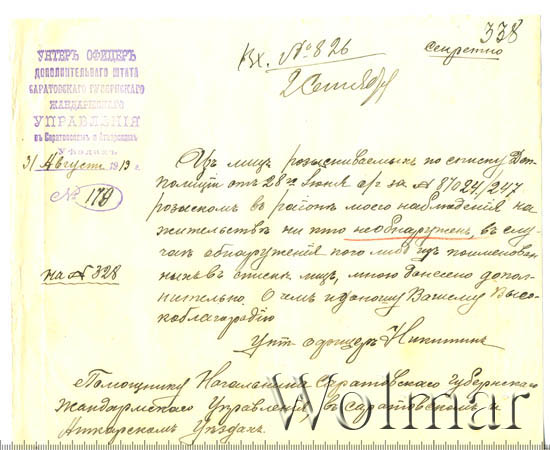 338
Вх. № 826
Секретно
2 Сентября
УНТЕРЪ ОФИЦЕРЪ
ДОПОЛНИТЕЛЬНАГО ШТАТА
САРАТОВСКАГО ГУБЕРНСКАГО
ЖАНДАРМСКАГО
УПРАВЛЕНІЯ
въ Саратовскомъ и Аткарскомъ
Уѣздахъ
31 Августа 1913 г.
№ 178
на № 328
Изъ лицъ розыскиваемыхъ по списку Деп.
Полиціи отъ 28го Іюня с/г за № 87024/247
розыскомъ въ районѣ моего наблюденія на
жительствѣ ни кто необнаруженъ, въ слу-
чаѣ обнаруженія кого либо изъ поименован-
ныхъ въ спискѣ лицъ, мною донесено допол-
нительно. О чемъ и доношу Вашему Высо-
коблагородію
Унт. офицеръ Никитинъ
Помощнику Начальника Саратовскаго Губернскаго
Жандармскаго Управленія, въ Саратовскомъ и
Аткарскомъ Уѣздахъ.
Wolmar